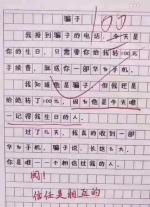 骗子
100
我接到骗子的电话，今天是
你的生日，只需要你给我转100元
手续费，就送你一部华为手机。
我知道他是骗子，但我还是
给他转了100元，因为他是今天唯
一记得我生日的人。
过了几天，我真的收到一部
华为手机，骗子说，长这么大，
你是唯一一个相信过我的人。
阅！
信任是相互的